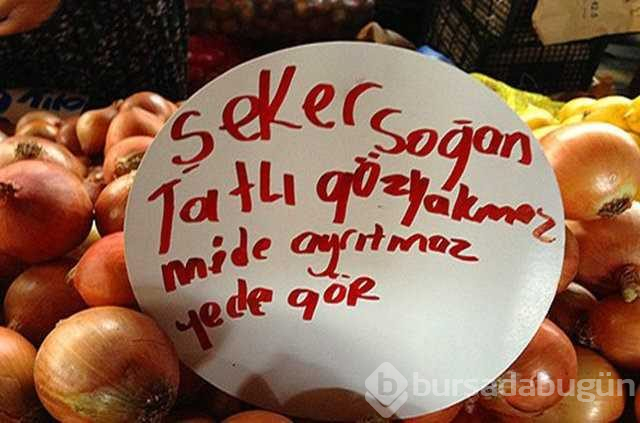 Şeker Soğan
Tatlı gözyakmaz
mide ayrıtmaz
yede gör
bursadabugün